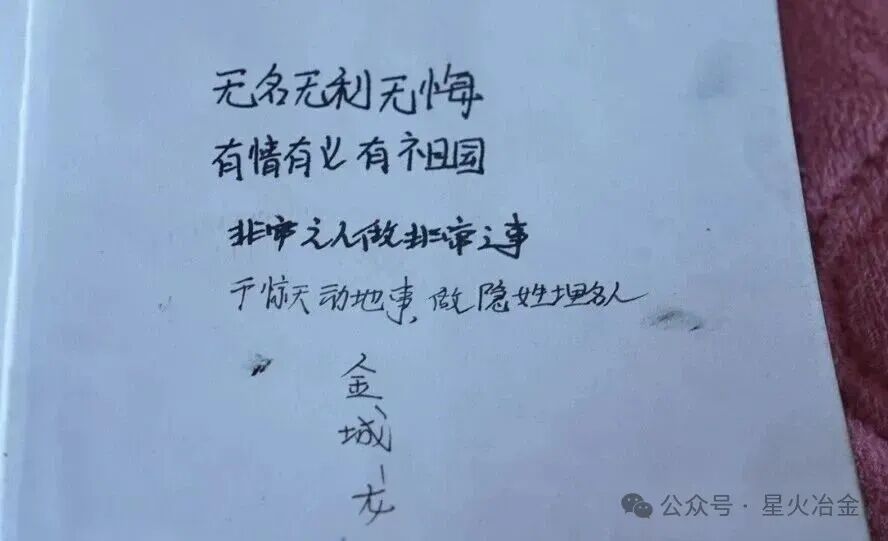 无名无利无悔
有情有义有祖国
非常之人做非常之事
干惊天动地事,做隐姓埋名人
金城
公众号·星火冶金